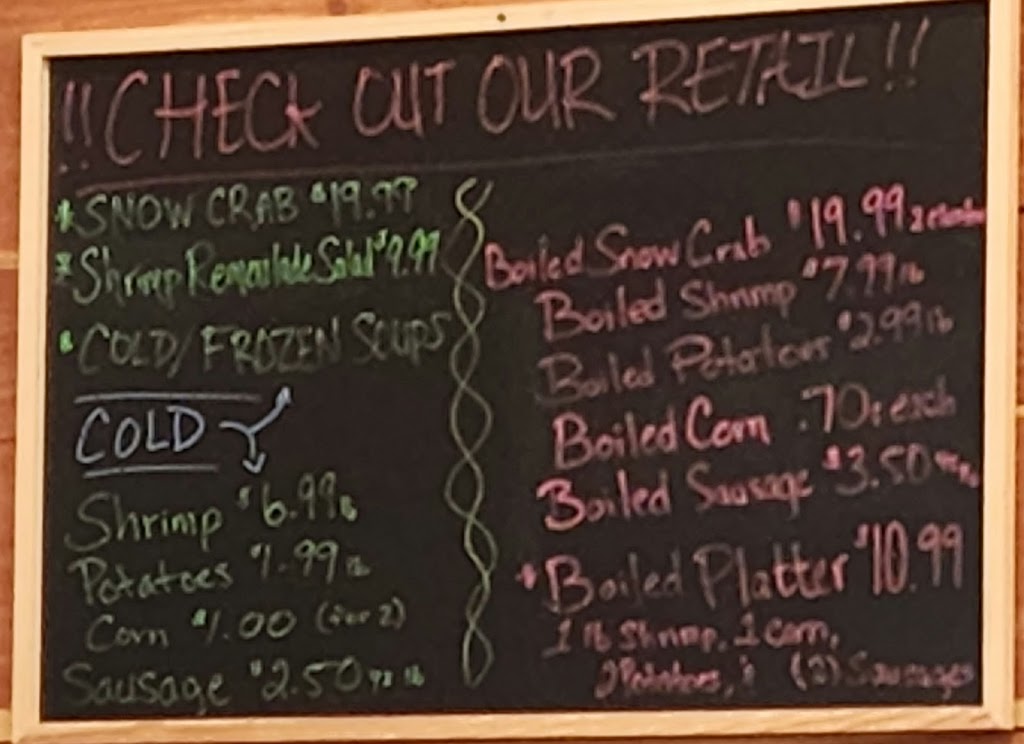 !!CHECK OUT OUR RETAIL!!
* SNOW CRAB $19.99
* Shrimp Remoulade Salad $9.99
* COLD/FROZEN SOUPS
COLD
Shrimp $6.99 lb
Potatoes $1.99 lb
Corn $1.00 (for 2)
Sausage $2.50 1/2 lb
Boiled Snow Crab $19.99 2 clusters
Boiled Shrimp $7.99 lb
Boiled Potatoes $2.99 lb
Boiled Corn .70¢ each
Boiled Sausage $3.50
* Boiled Platter $10.99
1 lb Shrimp, 1 corn,
2 Potatoes, & (2) Sausages